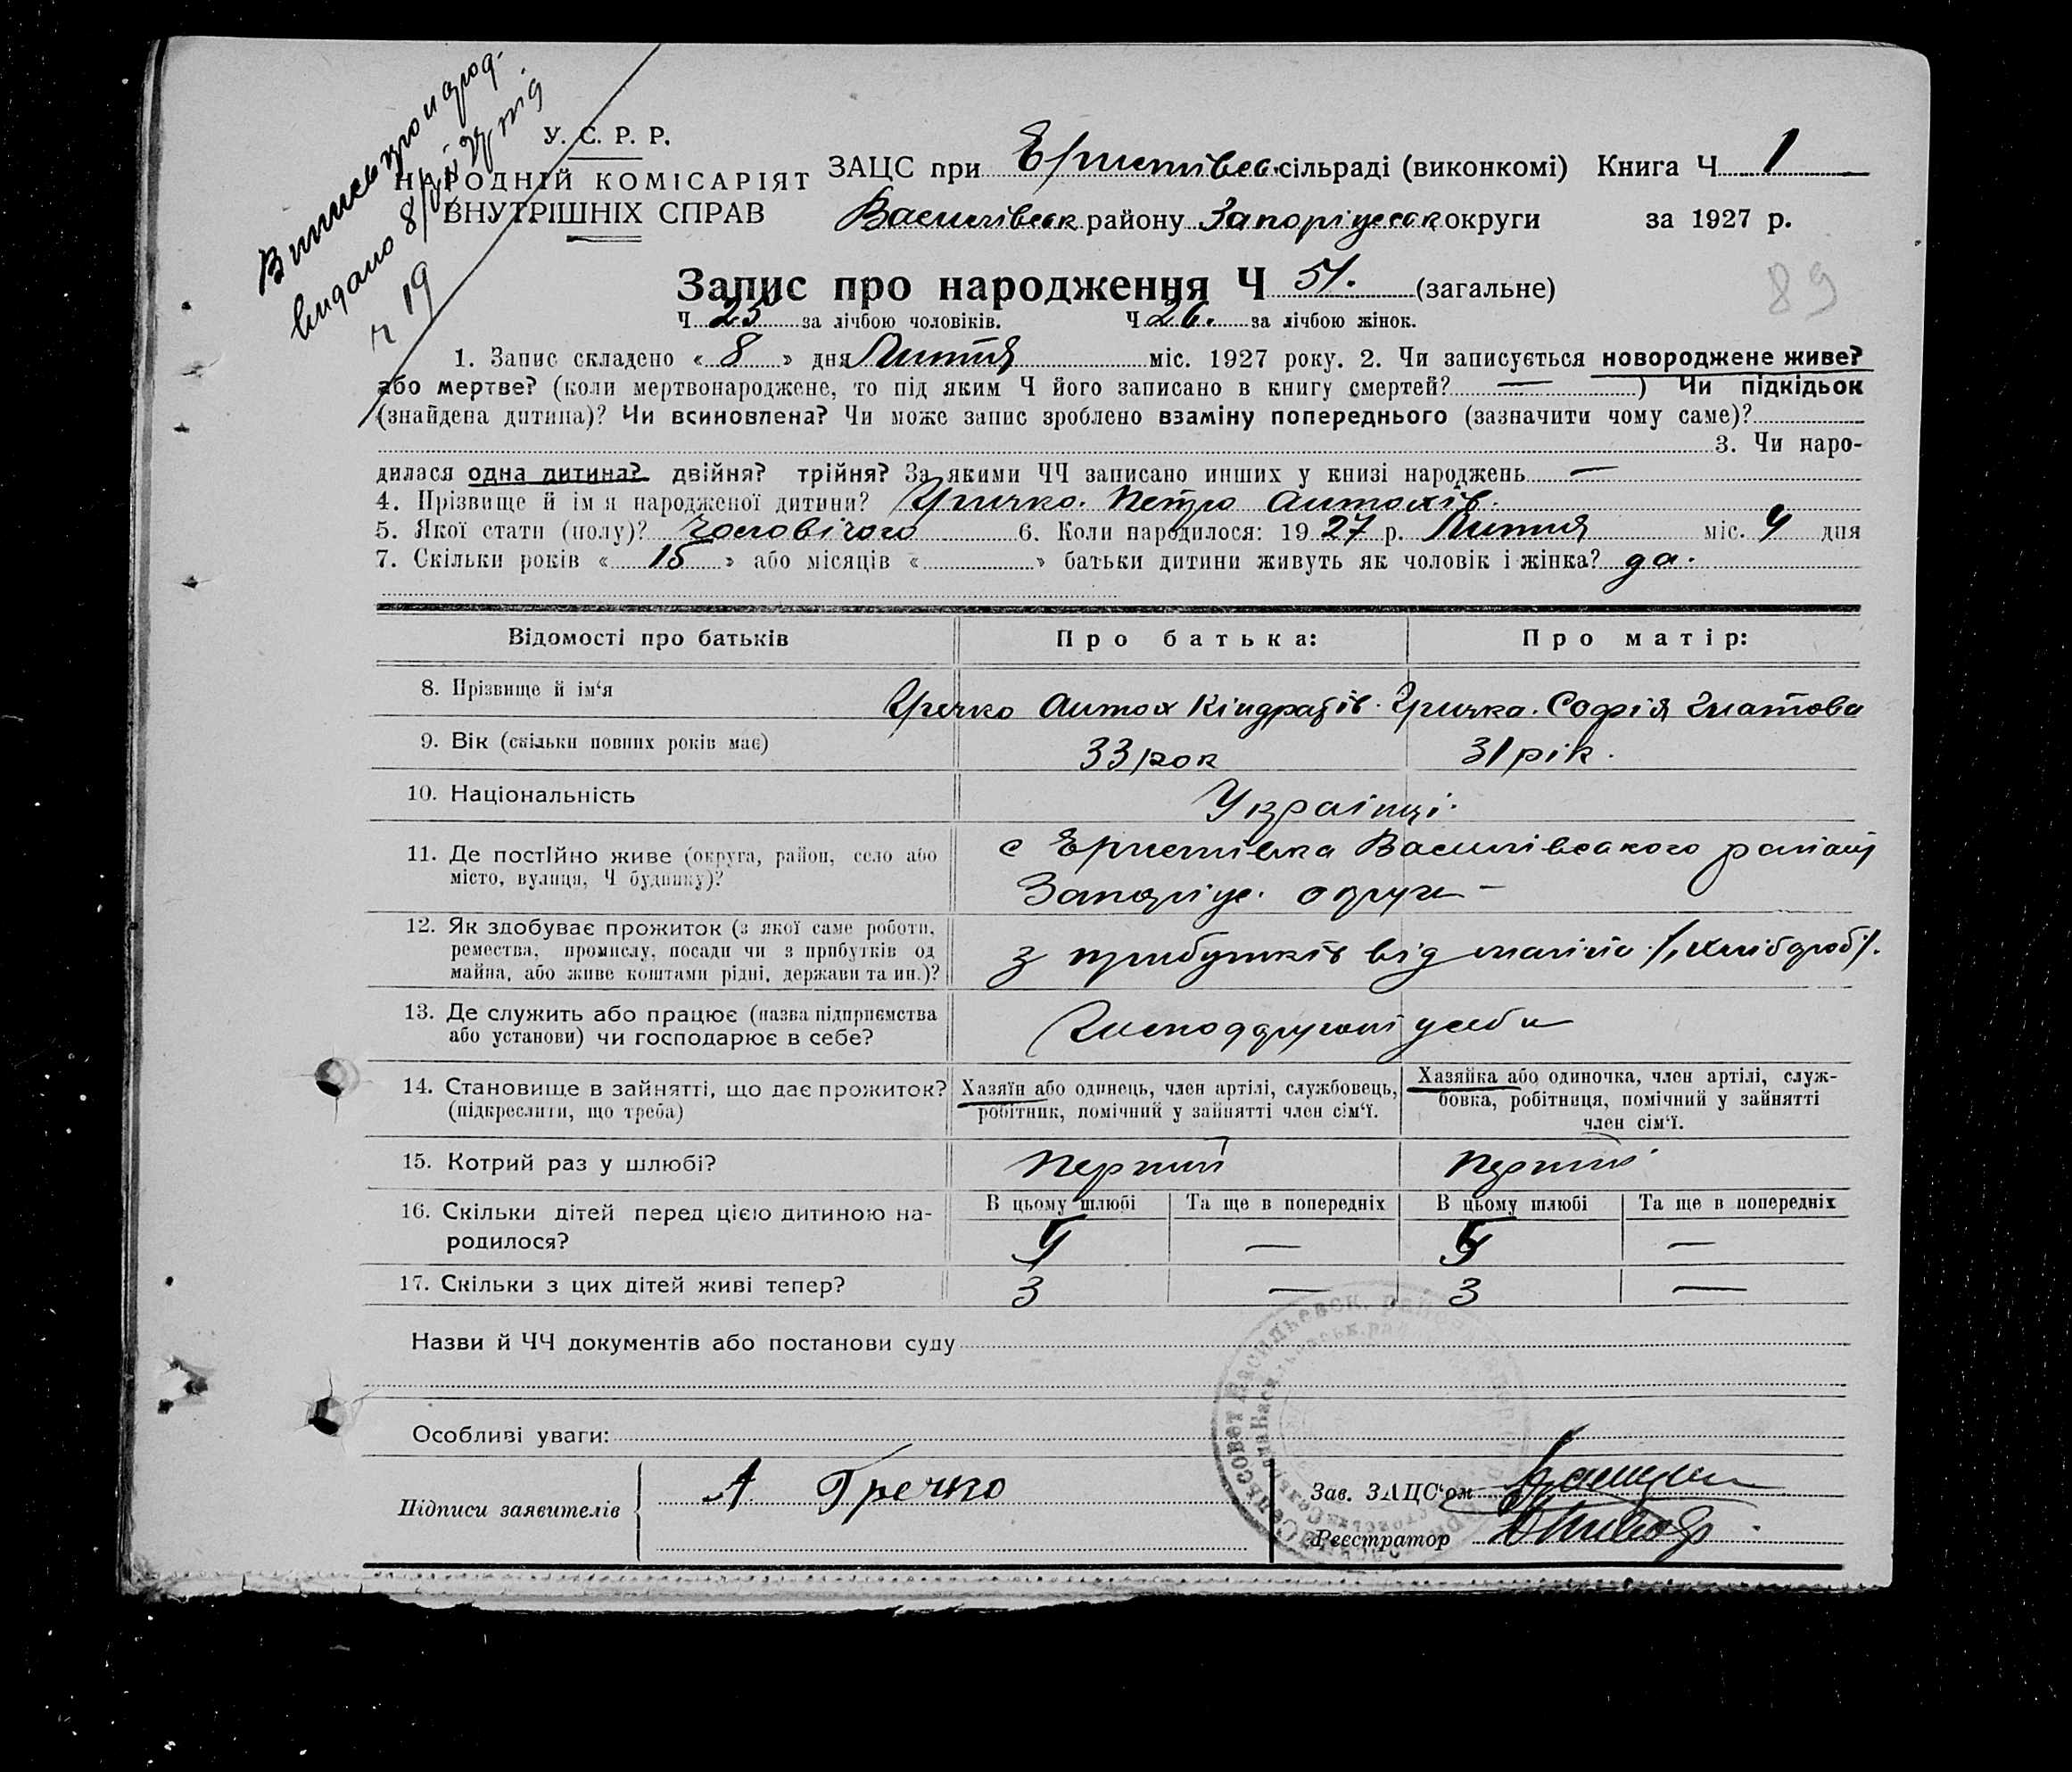 Випись про народ-
видано 8/
ч 19
У. С. Р. Р.
НАРОДНІЙ КОМІСАРІЯТ
ВНУТРІШНІХ СПРАВ
ЗАЦС при Єристівсь. сільраді (виконкомі) Книга Ч 1
Василівськ району Запоріжськ округи за 1927 р.
Запис про народження Ч 51. (загальне)
89
Ч 25 за лічбою чоловіків. Ч 26. за лічбою жінок.
1. Запис складено « 8 » дня Липня міс. 1927 року. 2. Чи записується новороджене живе?
або мертве? (коли мертвонароджене, то під яким Ч його записано в книгу смертей? — ) Чи підкідьок
(знайдена дитина)? Чи всиновлена? Чи може запис зроблено взаміну попереднього (зазначити чому саме)?
3. Чи наро-
дилася одна дитина? двійня? трійня? За якими ЧЧ записано инших у книзі народжень —
4. Прізвище й ім я народженої дитини? Гричко. Петро Антохів.
5. Якої стати (полу)? Чоловічого 6. Коли народилося: 1927 р. Липня міс. 4 дня
7. Скільки років « 15 » або місяців « » батьки дитини живуть як чоловік і жінка? да.
Відомості про батьків Про батька: Про матір:
8. Прізвище й ім‘я Гречко Антох Кіндратів. Гричка. Софія Гнатова
9. Вік (скільки повних років має) 33 рок 31 рік.
10. Національність Українці.
11. Де постІйно живе (округа, район, село або
місто, вулиця, Ч будинку)?
с Єристівка Василівського району
Запоріж. округи —
12. Як здобуває прожиток (з якої саме роботи,
ремества, промислу, посади чи з прибутків од
майна, або живе коштами рідні, держави та ин.)?
з прибутків від
13. Де служить або працює (назва підприємства
або установи) чи господарює в себе?
у себе
14. Становище в зайнятті, що дає прожиток?
(підкреслити, що треба)
Хазяїн або одинець, член артілі, службовець,
робітник, помічний у зайнятті член сім‘ї.
Хазяйка або одиночка, член артілі, служ-
бовка, робітниця, помічний у зайнятті
член сім‘ї.
15. Котрий раз у шлюбі? Перший Перший
16. Скільки дітей перед цією дитиною на-
родилося?
В цьому шлюбі Та ще в попередніх В цьому шлюбі Та ще в попередніх
5 — 5 —
17. Скільки з цих дітей живі тепер? 3 — 3 —
Назви й ЧЧ документів або постанови суду
Особливі уваги:
Підписи заявителів А Гречко
Зав. ЗАЦС‘ом
Реєстратор